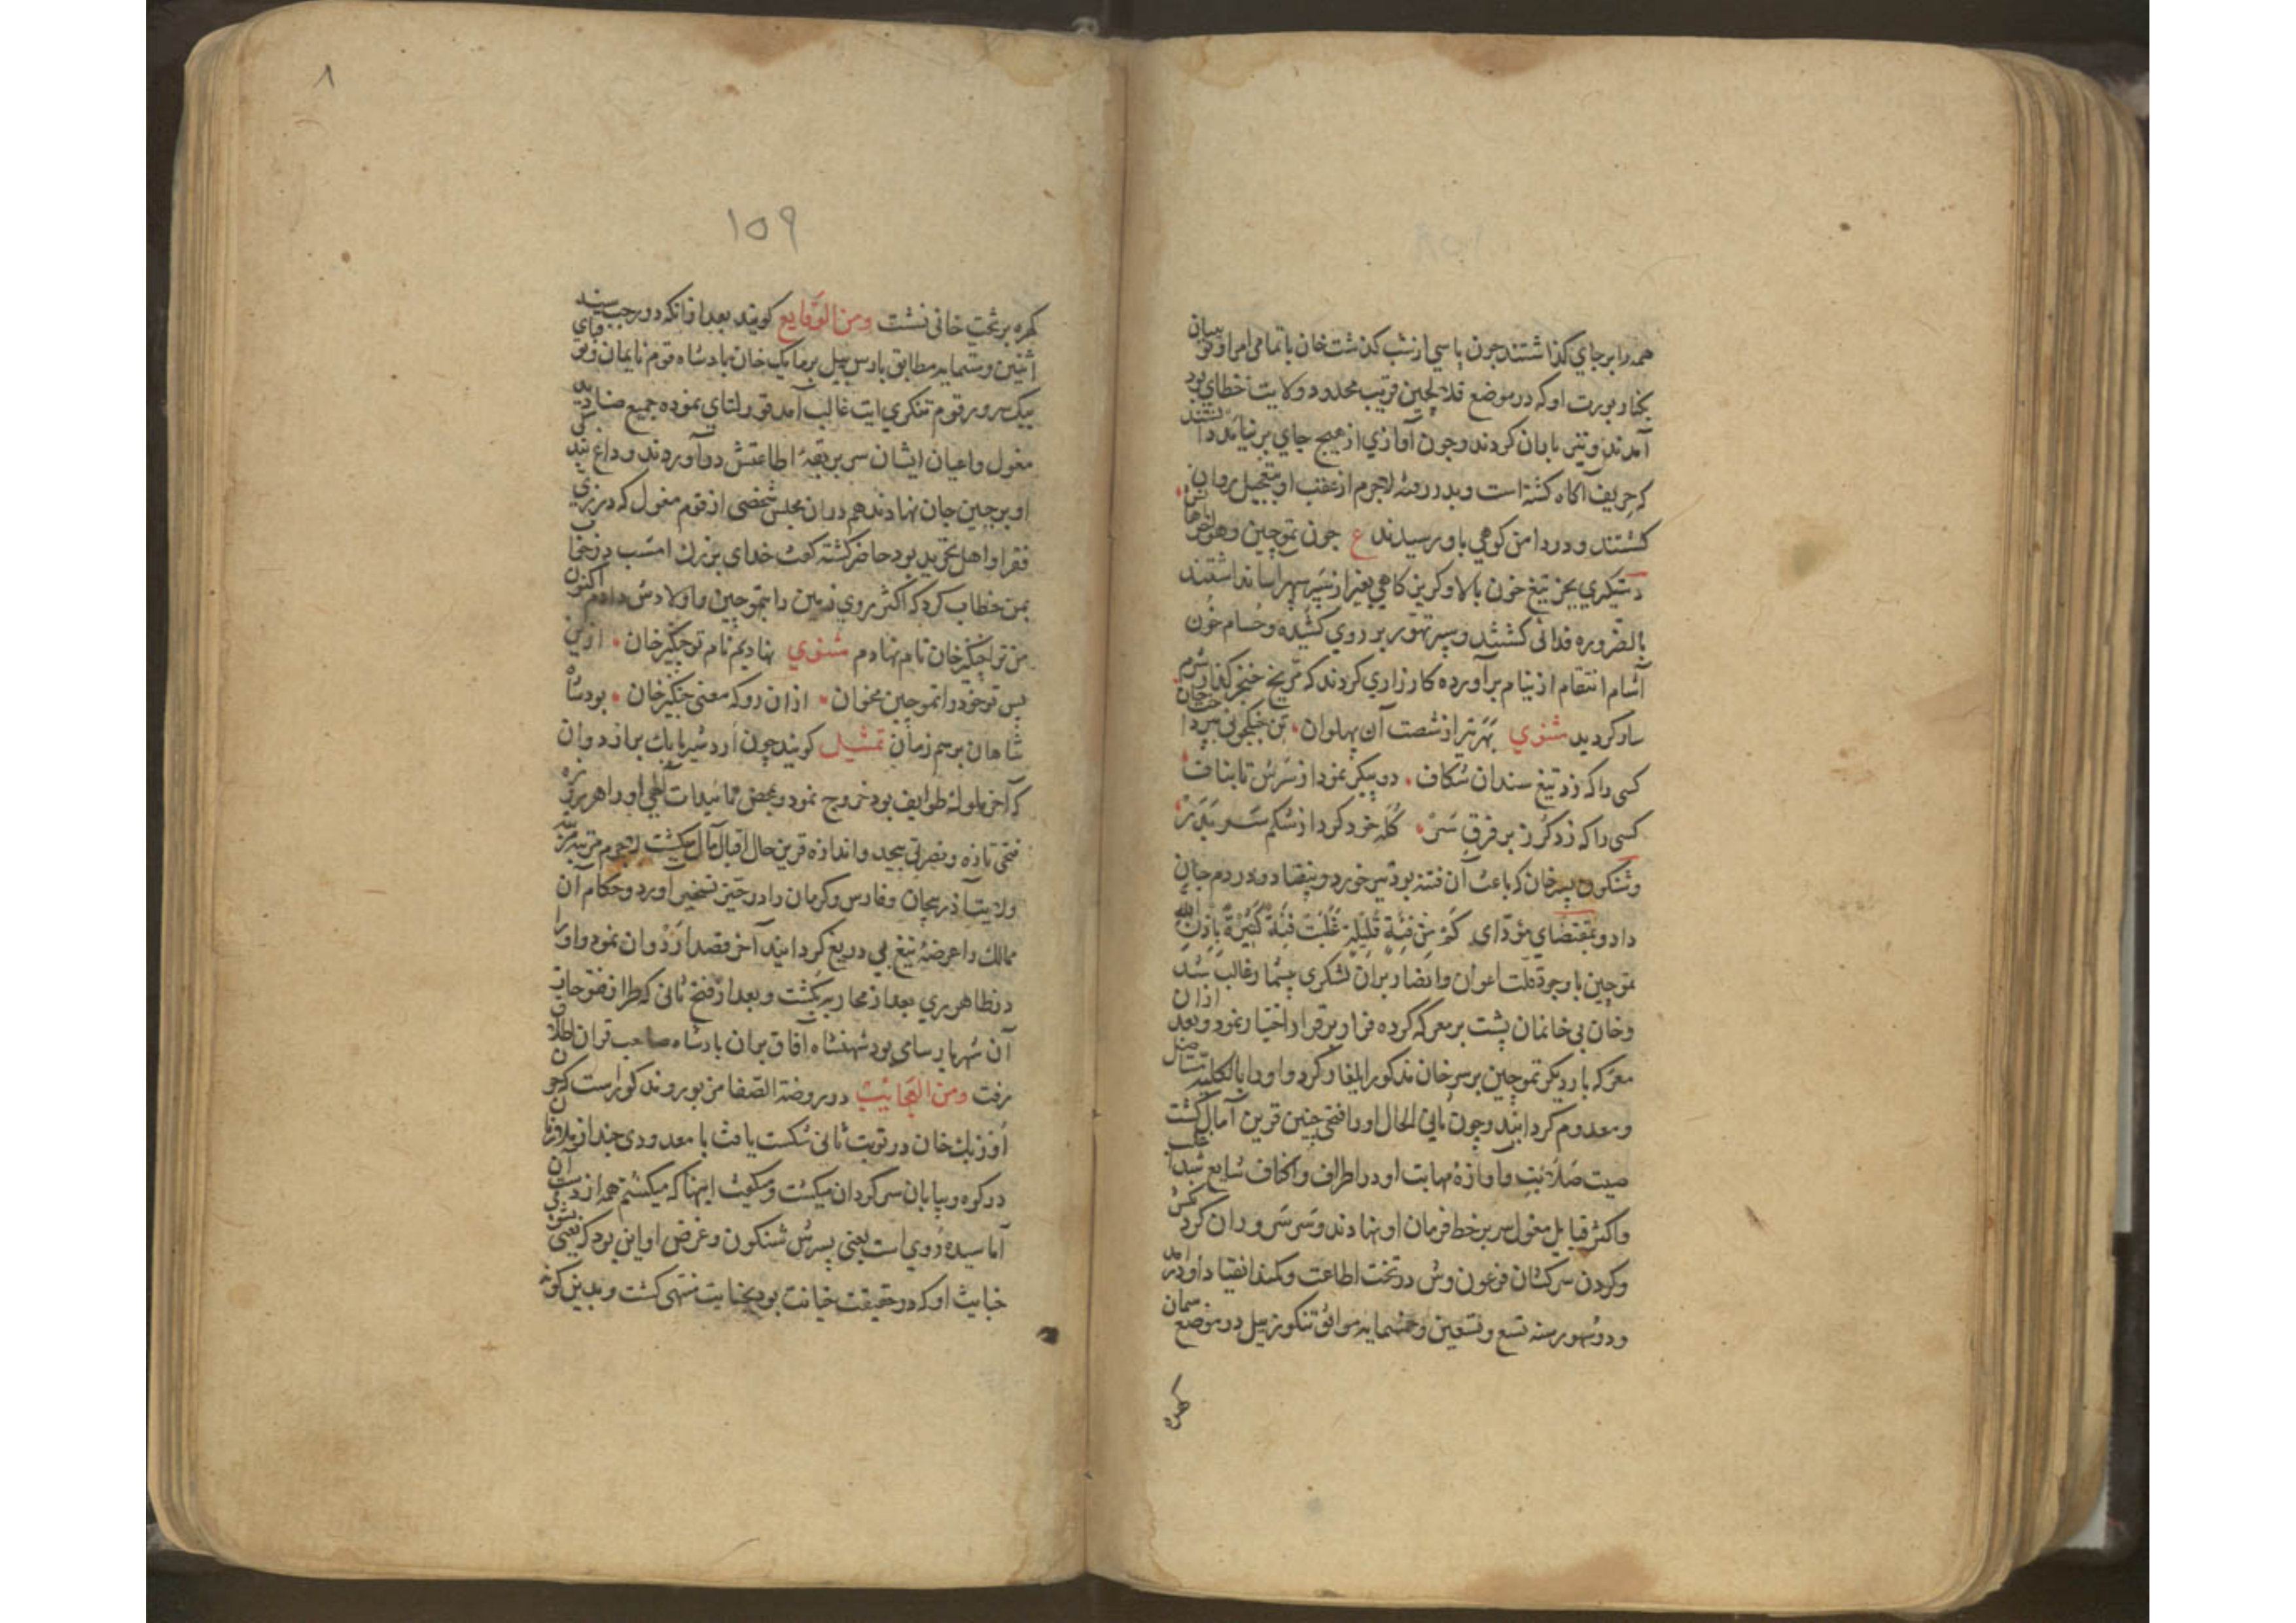 همه را بر جاي كذاشتند جون پاسي از شب كذشت خان با تمامي امرا و نويينان
بكنار يورت او كه در موضع قلاجين قريب بحدود ولايت خطاي بود
آمدند و تير باران كردند و جون آوازي از هيج جاي بر نيامد دانستند
كه حريف آكاه كشته است و بدر رفته لاجرم از عقب او بتعجيل روان
كشتند و در دامن كوهي باو رسيدند ع جون تموجين و همراهانش
دستكيري بجز تيغ خون بالا و كريزكاهي بغير از تير سپهر آسا نداشتند
بالضروره فدائي كشتند و سپر تهور بر روي كشيده و حسام خون
آشام انتقام از نيام برآورده كارزاري كردند كه مريخ خنجر كذار شرم
سار كرديد مثنوي بهر تير از شصت آن پهلوان
كسي را كه زد تيغ سندان شكاف دو پيكر نمود از سرش تا بناف
كسي را كه زد كرز بر فرق سر كله خرد كرد از شكم سر بدر
و شنكون پسر خان كه باعث آن فتنه بود تير خورد و بيفتاد و در دم جان
داد و بمقتضاي مؤداي كم من فئة قليلة غلبت فئة كثيرة باذن الله
تموجين با وجود قلت اعوان و انصار بران لشكري بيشمار غالب شد
و خان بي خانمان پشت بر معركه كرده فرار بر قرار اختيار نمود و بعد از آن
معركه بار ديكر تموجين بر سر خان مذكور ايلغار كرد و او را بالكليه مستاصل
و معدوم كردانيد و چون في الحال او را فتحي چنين قرين آمال كشت
صيت صلابت و آوازه مهابت او در اطراف و اكناف شايع شد
و اكثر قبايل مغول سر بر خط فرمان او نهادند و سر سروران كردنكش
و كردن سركشان فرعون وش در تحت اطاعت و كمند انقياد او در آمد
و در شهور سنه تسع و تسعين و خمسمايه موافق تنكوز ييل در موضع سمان
كهره
١٥٩
٨
كهره بر تخت خاني نشست ومن الوقايع كويند بعد ازانكه در رجب سنه
اثنين و ستمايه مطابق بارس ييل بر تايانك خان پادشاه قوم نايمان و
بيك سرور قوم تنكري ايت غالب آمد قورلتاي نموده جميع صناديد
مغول و اعيان ايشان سر بر بقعۀ اطاعتش درآوردند و داغ بندكي
او بر جبين جان نهادند هم دران مجلس شخصي از قوم مغول كه در زي
فقرا و اهل تجريد بود حاضر كشته كفت خداي بزرك امشب در خواب
بمن خطاب كرد كه اكثر روي زمين را بتموجين و اولادش دادم اكنون
من ترا چنكيز خان نام نهادم مثنوي نهاديم نام تو چنكيز خان ازين
پس تو خود را تموجين مخوان ازان رو كه معني چنكيز خان بود شاه
شاهان برسم زمان تمثيل كويند چون اردشير بابك بر اردوان
كه آخر ملوك طوايف بود خروج نمود و بمحض تائيدات الهي او را هر روز
فتحي تازه و نصرتي بيحد و اندازه قرين حال اقبال مآل ميكشت لاجرم
ولايت آذربيجان و فارس و كرمان را در حيز تسخير آورد و حكام آن
ممالك را عرضه تيغ بي دريغ كردانيد آخر قصد اردوان نمود و او را
در ظاهر ري بعد از محاربه بكشت و بعد از فتح ثاني كه طراز فتوحات
آن شهريار سامي بود شهنشاه آفاق بران پادشاه صاحب قران اطلاق
رفت ومن العجايب در روضة الصفا مزبور و مذكور است كه چون
اوزنك خان در نوبت ثاني شكست يافت با معدودي چند از ملازمان
در كوه و بيابان سركردان ميكشت و ميكفت اينها كه ميكشم همه از دست آن
اما سيده روي است يعني پسرش شنكون و غرض او اين بود كه يعني بشومي
خباثت او كه در حقيقت خيانت بود بجنايت منتهي كشت و بدين كونه